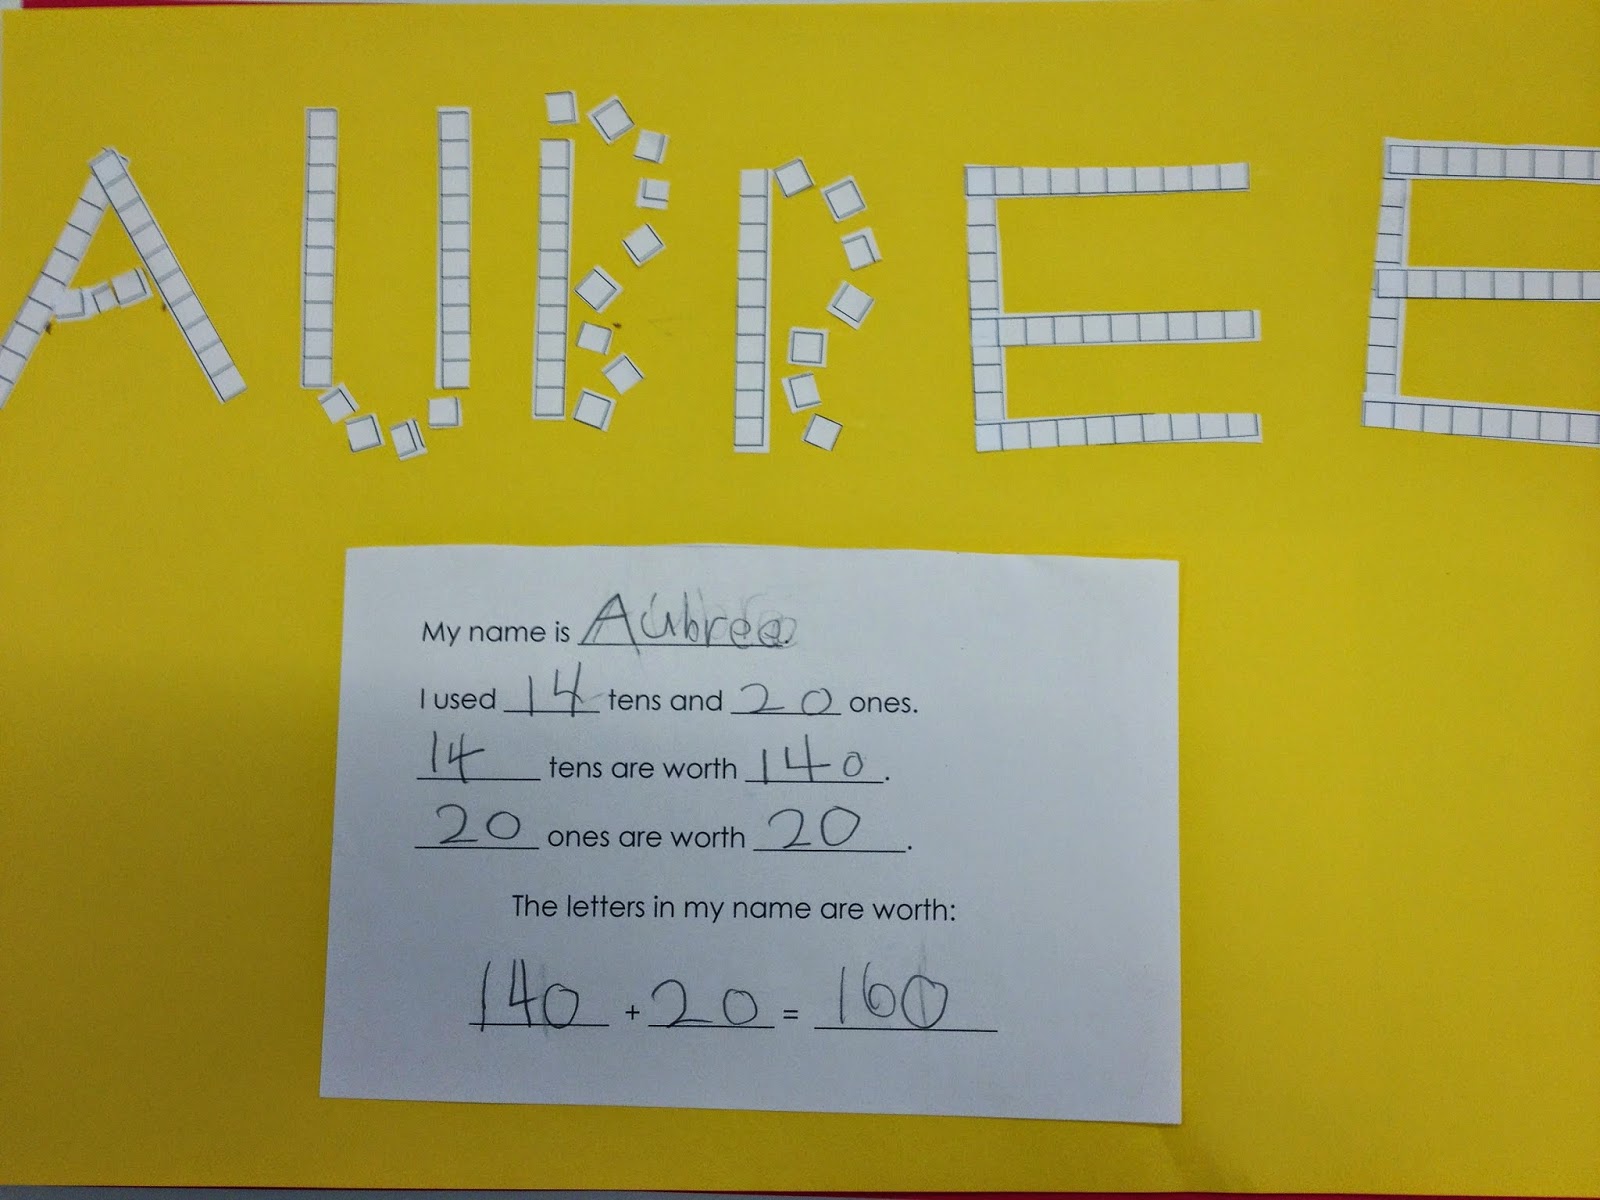 AUBREE
My name is Aubree.
I used 14 tens and 20 ones.
14 tens are worth 140.
20 ones are worth 20.
The letters in my name are worth:
140 + 20 = 160